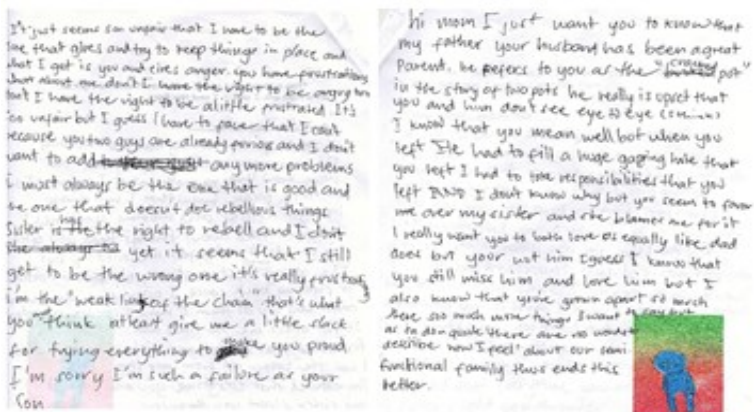 It's just seems son unfair that I have to be the
one that gives and try to keep things in place and
what I get is you and anger. you have frustrations
what about me don't I have the right to be angry
don't I have the right to be a little frustrated. It's
so unfair but I guess I have to face that I can't
because you two guys are already furious and I don't
want to add any more problems
i must always be the one that is good and
the one that doesn't doe rebellious things
Sister has the right to rebell and I don't
yet it seems that I still
get to be the wrong one it's really
i'm the "weak link of the chain" that's what
you think atleast give me a little slack
for trying everything to make you proud
I'm sorry I'm such a failure as your
Son
hi mom I just want you to know that
my father your husband has been a great
Parent. he refers to you as the "cracked pot"
in the story of two pots he really is upset that
you and him don't see eye to eye
I know that you mean well but when you
left He had to fill a huge gaping hole that
you left I had to take responsibilities that you
left AND I don't know why but you seem to favor
me over my sister and she blames me for it
I really want you to both love us equally like dad
does but your not him I guess I know that
you still miss him and love him but I
also know that you've grown apart so much
there soo much more things I want to say but
there are no words
describe how I feel about our semi
functional family thus ends this
letter.